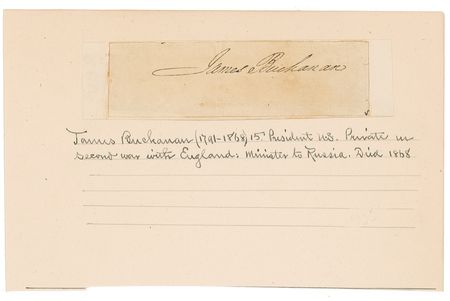 James Buchanan
James Buchanan (1791-1868) 15th President U.S. Private in
second war with England; Minister to Russia. Died 1868